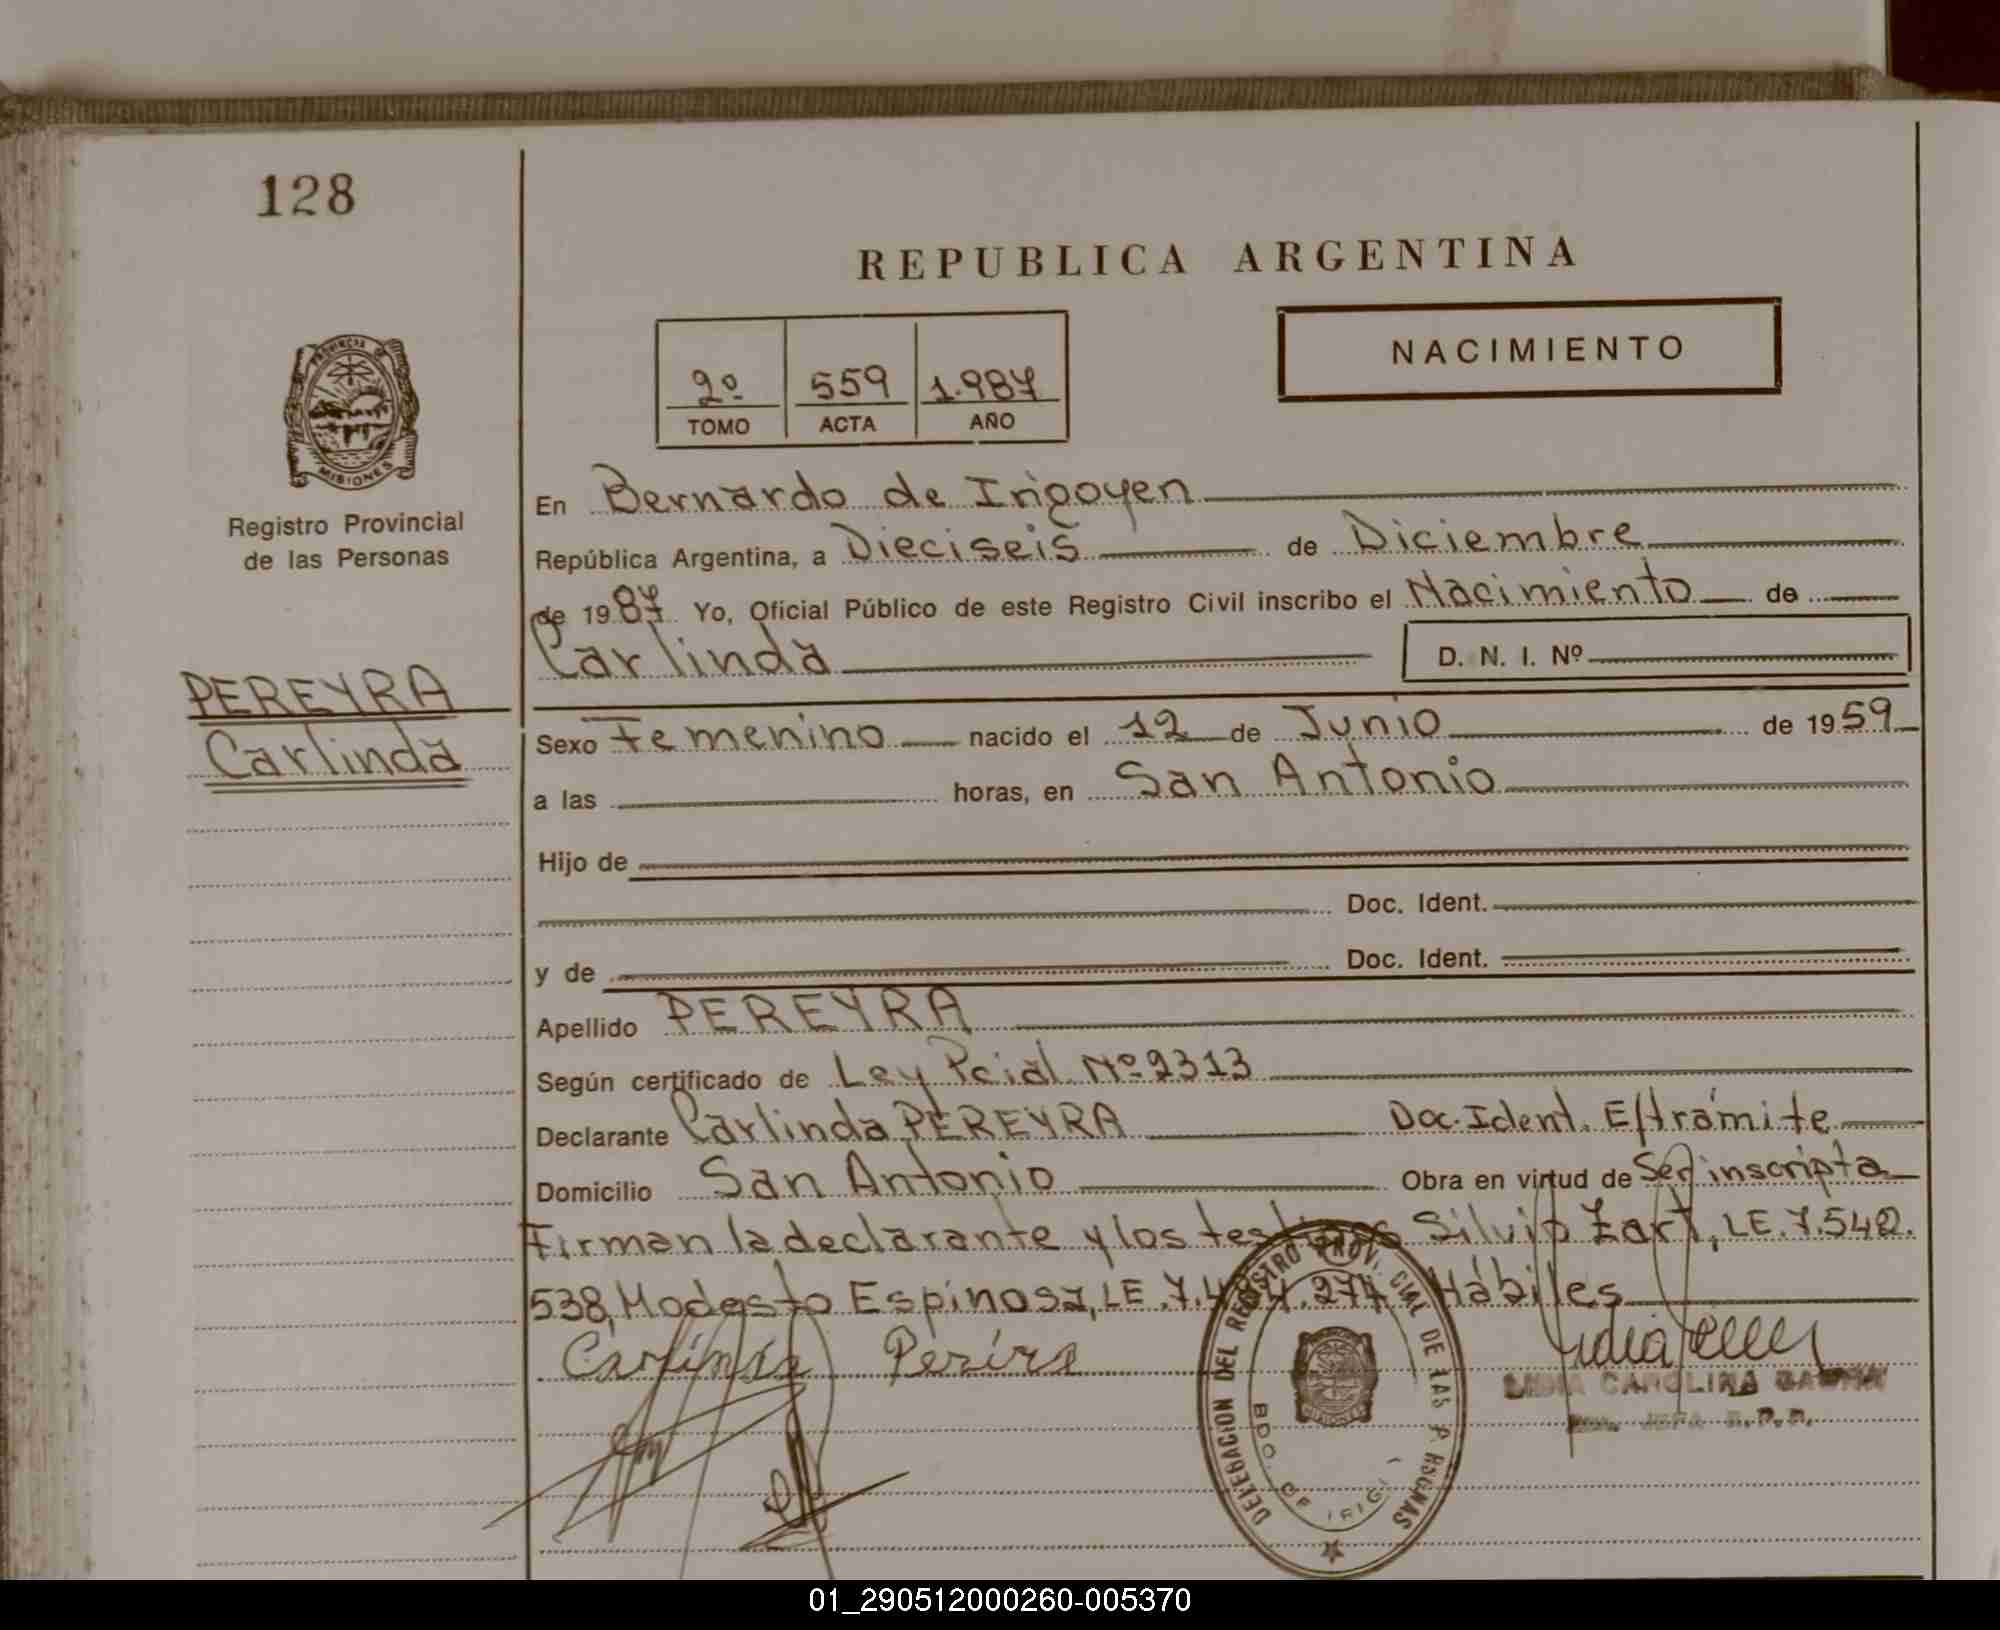 128
REPUBLICA ARGENTINA
NACIMIENTO
2º 559 1.987
TOMO ACTA AÑO
PROVINCIA DE
MISIONES
Registro Provincial
de las Personas
PEREYRA
Carlinda
En Bernardo de Irigoyen
República Argentina, a Dieciseis de Diciembre
de 1987 Yo, Oficial Público de este Registro Civil inscribo el Nacimiento de
Carlinda D. N. I. Nº
Sexo Femenino nacido el 12 de Junio de 1959
a las horas, en San Antonio
Hijo de
Doc. Ident.
y de Doc. Ident.
Apellido PEREYRA
Según certificado de Ley Pcial Nº 2313
Declarante Carlinda PEREYRA Doc. Ident. E/trámite
Domicilio San Antonio Obra en virtud de Ser inscripta
Firman la declarante y los testigos Silvio Zart, LE.7.542.
538, Modesto Espinosa, LE.7. Hábiles
Carlinda Pereira
DELEGACION DEL REGISTRO PROVINCIAL DE LAS PERSONAS
BDO. DE IRIG.
CAROLINA
JEFA R.P.P.
01_290512000260-005370